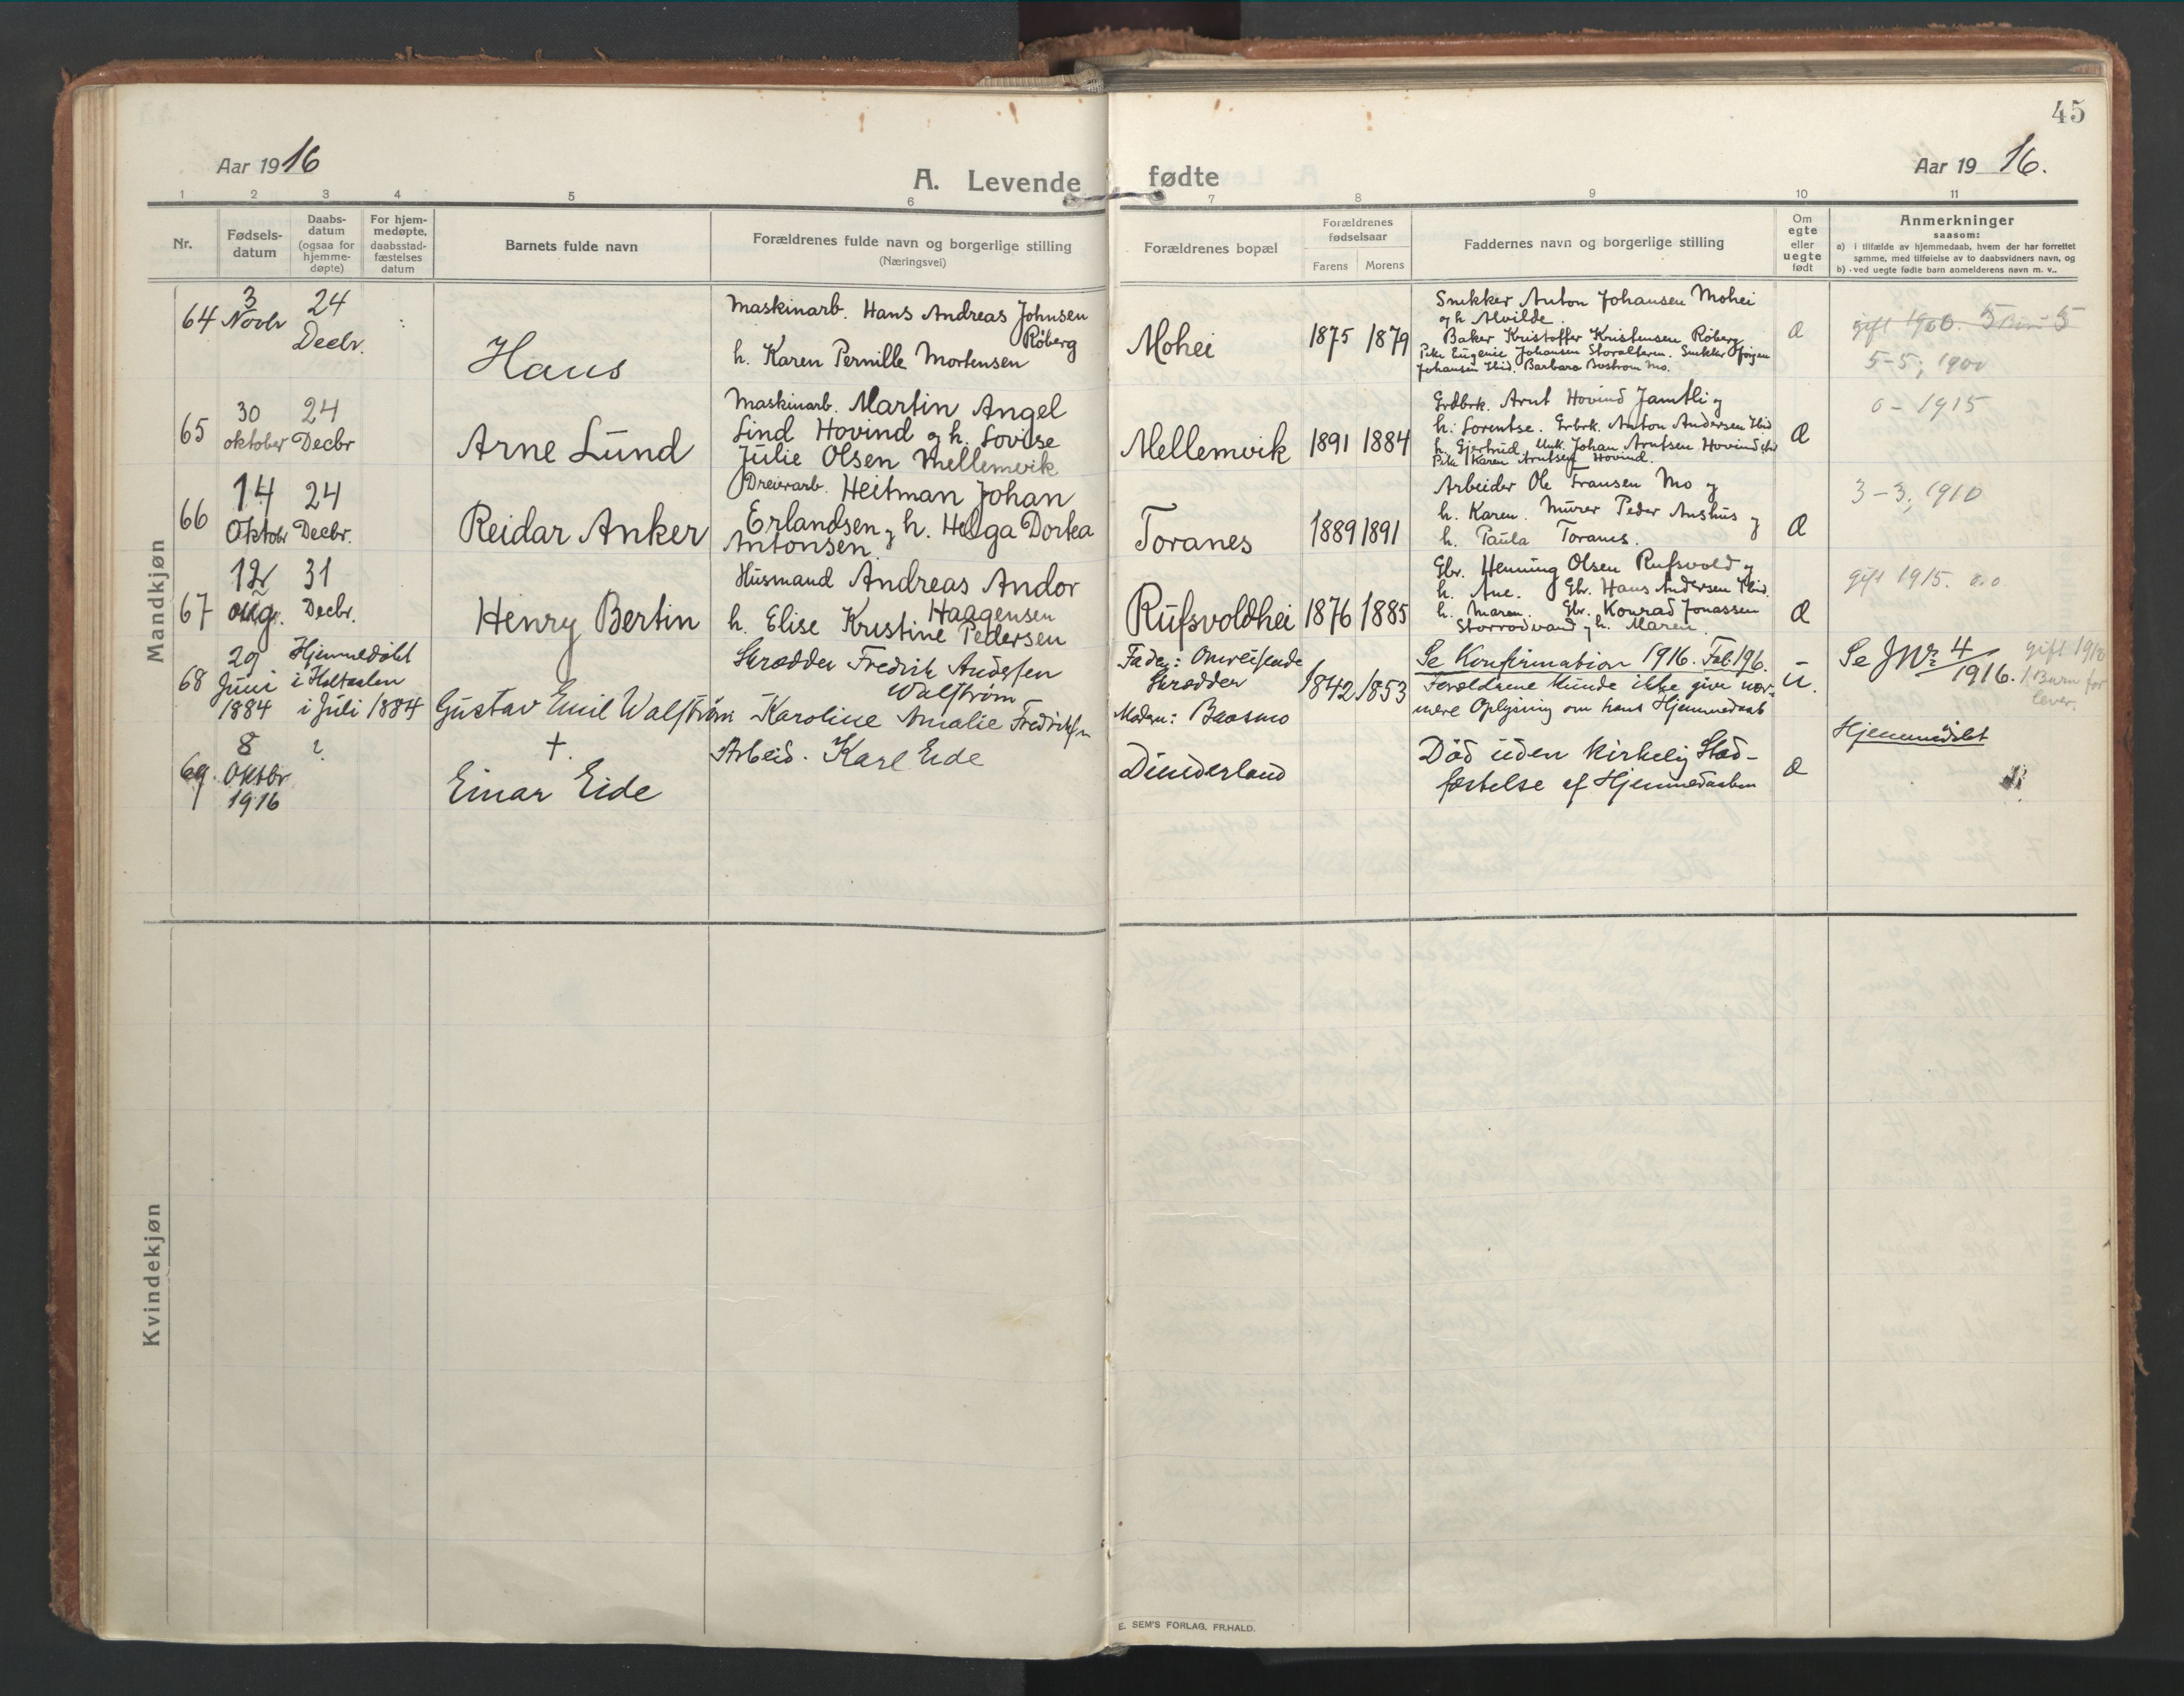 45
Aar 1916
A. Levende fødte
Aar 1916.
1 2 3 4 5 6 7 8 9 10 11
Nr.
Fødsels-
datum
Daabs-
datum
(ogsaa for
hjemme-
døpte)
For hjem-
medøpte,
daabsstad-
fæstelses
datum
Barnets fulde navn
Forældrenes fulde navn og borgerlige stilling
(Næringsvei)
Forældrenes bopæl
Forældrenes
fødselsaar
Farens Morens
Faddernes navn og borgerlige stilling
Om
egte
eller
uegte
født
Anmerkninger
saasom:
a) i tilfælde av hjemmedaab, hvem der har forrettet
samme, med tilføielse av to daabsvidners navn, og
b) ved uegte fødte barn anmelderens navn m. v..
Mandkjøn
64
3
Novbr
24
Decbr.
Hans
Maskinarb. Hans Andreas Johnsen
Røberg
h. Karen Pernille Mortensen
Mohei
1875 1879
Snekker Anton Johansen Mohei
og h. Alvilde.
Baker Kristoffer Kristensen Røberg
Pike Eugenie Johansen Storalteren. Snekker Jørgen
Johansen Ibid. Barbara Bostrøm Mo.
Æ
gift 1900. 5 Barn 5
5-5; 1900
65
30
oktober
24
Decbr
Arne Lund
Maskinarb. Martin Angel
Lind Hovind og h. Lovise
Julie Olsen Mellemvik
Mellemvik
1891 1884
Grdbrk. Arnt Hovind Jamtli og
h. Lorentse. Grbrk. Anton Andersen Ibid
h. Gjertrud. Unk. Johan Arntsen Hovind
Pike Karen Arntsen Hovind.
Æ
0 - 1915
66
14
Oktobr
24
Decbr.
Reidar Anker
Dreierarb. Heitman Johan
Erlandsen og h. Helga Dortea
Antonsen.
Toranes
1889 1891
Arbeider Ole Fransen Mo og
h. Karen. Murer Peder Aushus og
h. Paula Toranes.
Æ
3-3; 1910
67
12
aug.
31
Decbr.
Henry Bertin
Husmand Andreas Andor
Haagensen
h. Elise Kristine Pedersen
Rufsvoldhei
1876 1885
Gbr. Henning Olsen Rufsvold og
h. Ane. Gbr. Hans Andersen Ibid.
h. Maren. Gbr. Konrad Jonassen
Storrødvand og h. Maren.
Æ
gift 1915. 0.0
68
29
Juni
1884
Hjemmedøbt
i Holtaalen
i Juli 1884
Gustav Emil Walstrøm
Skrædder Fredrik Andersen
Walstrøm
Karoline Amalie Fredriksen
Fader: Omreisende
Skrædder
Moderen: Baasmo
1842. 1853
Se Konfirmation 1916. Fol. 196.
Forældrene kunde ikke give nær-
mere Oplysning om hans Hjemmedaab
u.
Se J Nr. 4
1916.
gift 1918
1 Barn før
lever.
69.
8
Oktbr
1916
?
†.
Einar Eide
Arbeid. Karl Eide
Dunderland
Död uden kirkelig Stad-
fæstelse af Hjemmedaaben
Æ
Hjemmedøbt
Kvindekjøn
E. SEM'S FORLAG, FR.HALD.